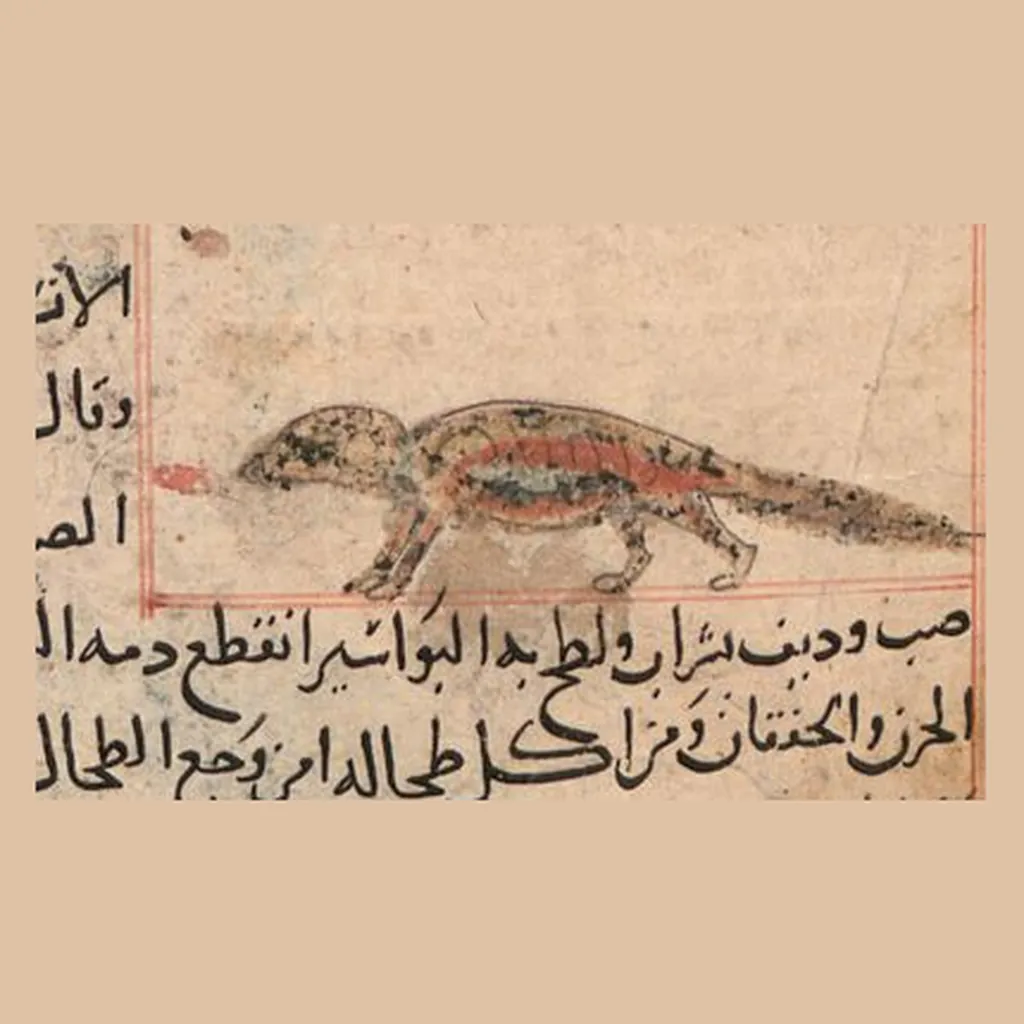 الا
وقال
الص
ضب وديف بشراب ولطخ به البواسير انقطع دمه ال
الحزن والخفقان ومن اكل طحاله امن وجع الطحال